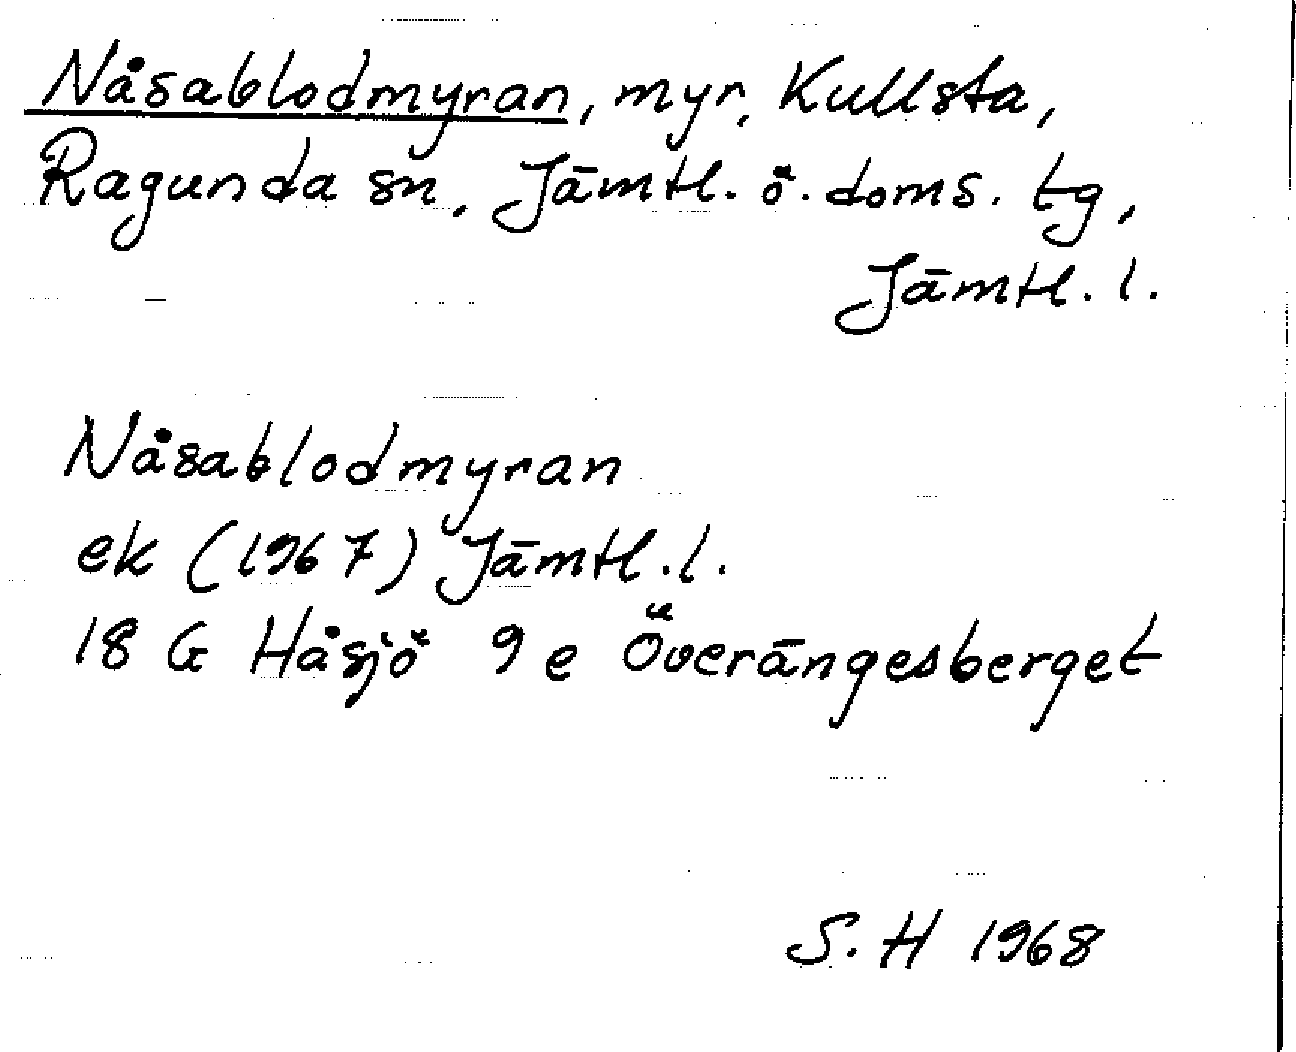 Nåsablodmyran, myr, Kullsta,
Ragunda sn, Jämtl. ö. doms. tg,
Jämtl. l.
Nåsablodmyran
ek (1967) Jämtl. l.
18 G Håsjö 9 e Överängesberget
S. H 1968